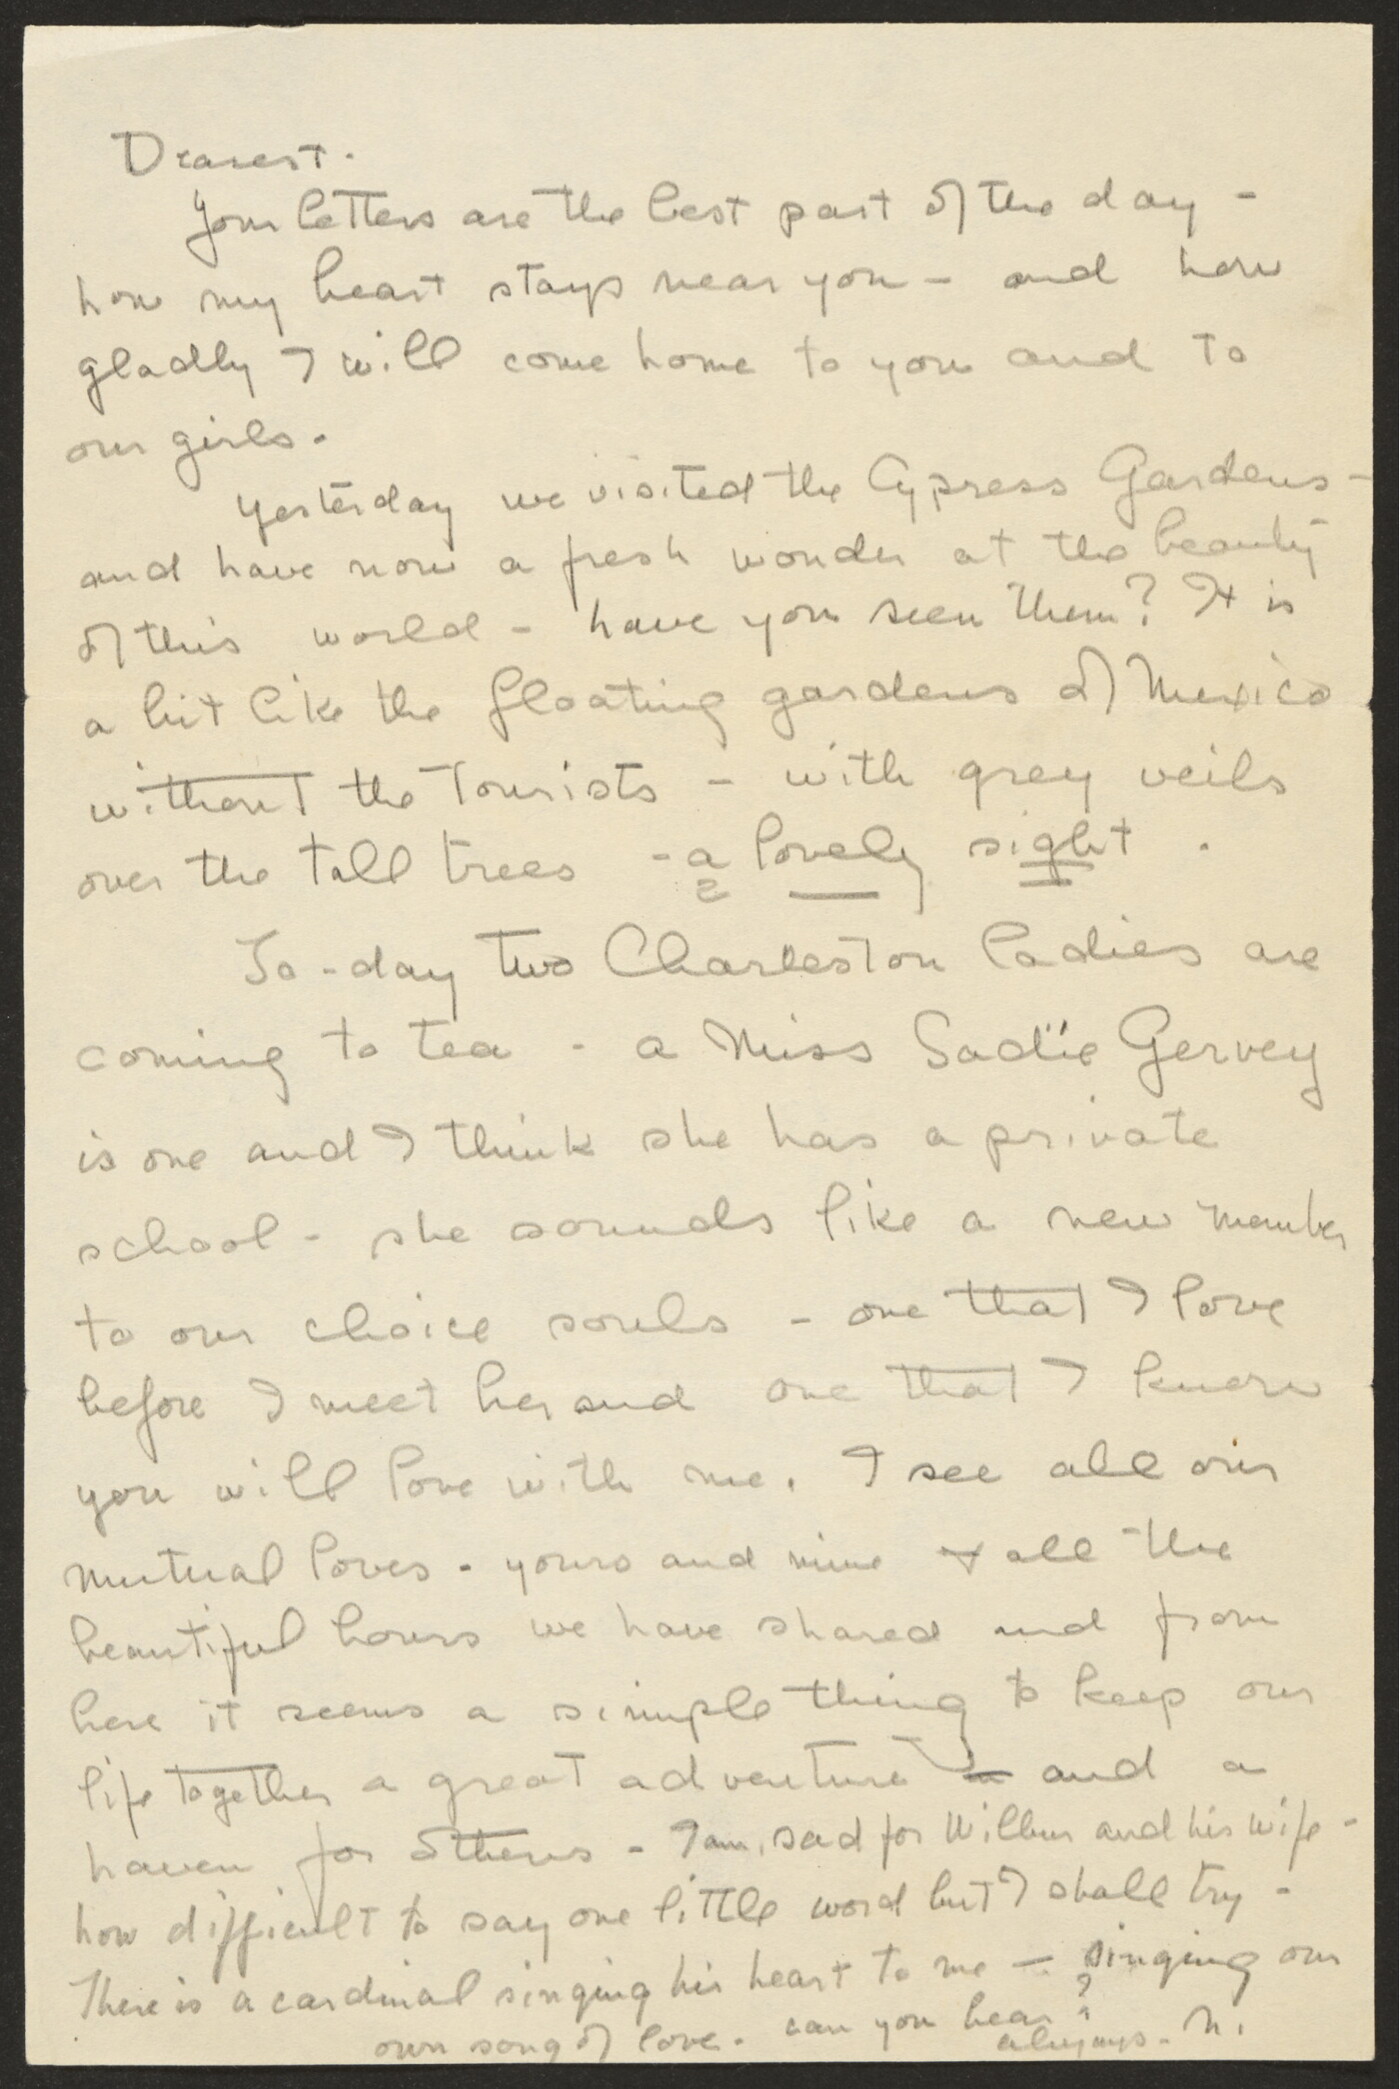 Dearest.
Your letters are the best part of the day -
how my heart stays near you - and how
gladly I will come home to you and to
our girls.
Yesterday we visited the Cypress Gardens -
and have now a fresh wonder at the beauty
of this world - have you seen them? It is
a bit like the floating gardens of Mexico
without the tourists - with grey veils
over the tall trees - a lovely sight.
To-day two Charleston ladies are
coming to tea - a Miss Sadie Gervey
is one and I think she has a private
school - she sounds like a new member
to our choice souls - one that I love
before I meet her and one that I know
you will love with me. I see all our
mutual loves - yours and mine & all the
beautiful hours we have shared and from
here it seems a simple thing to keep our
life together a great adventure and a
haven for others - I am sad for Wilbur and his wife -
how difficult to say one little word but I shall try -
There is a cardinal singing his heart to me - singing our
own song of love. can you hear?
always - N.